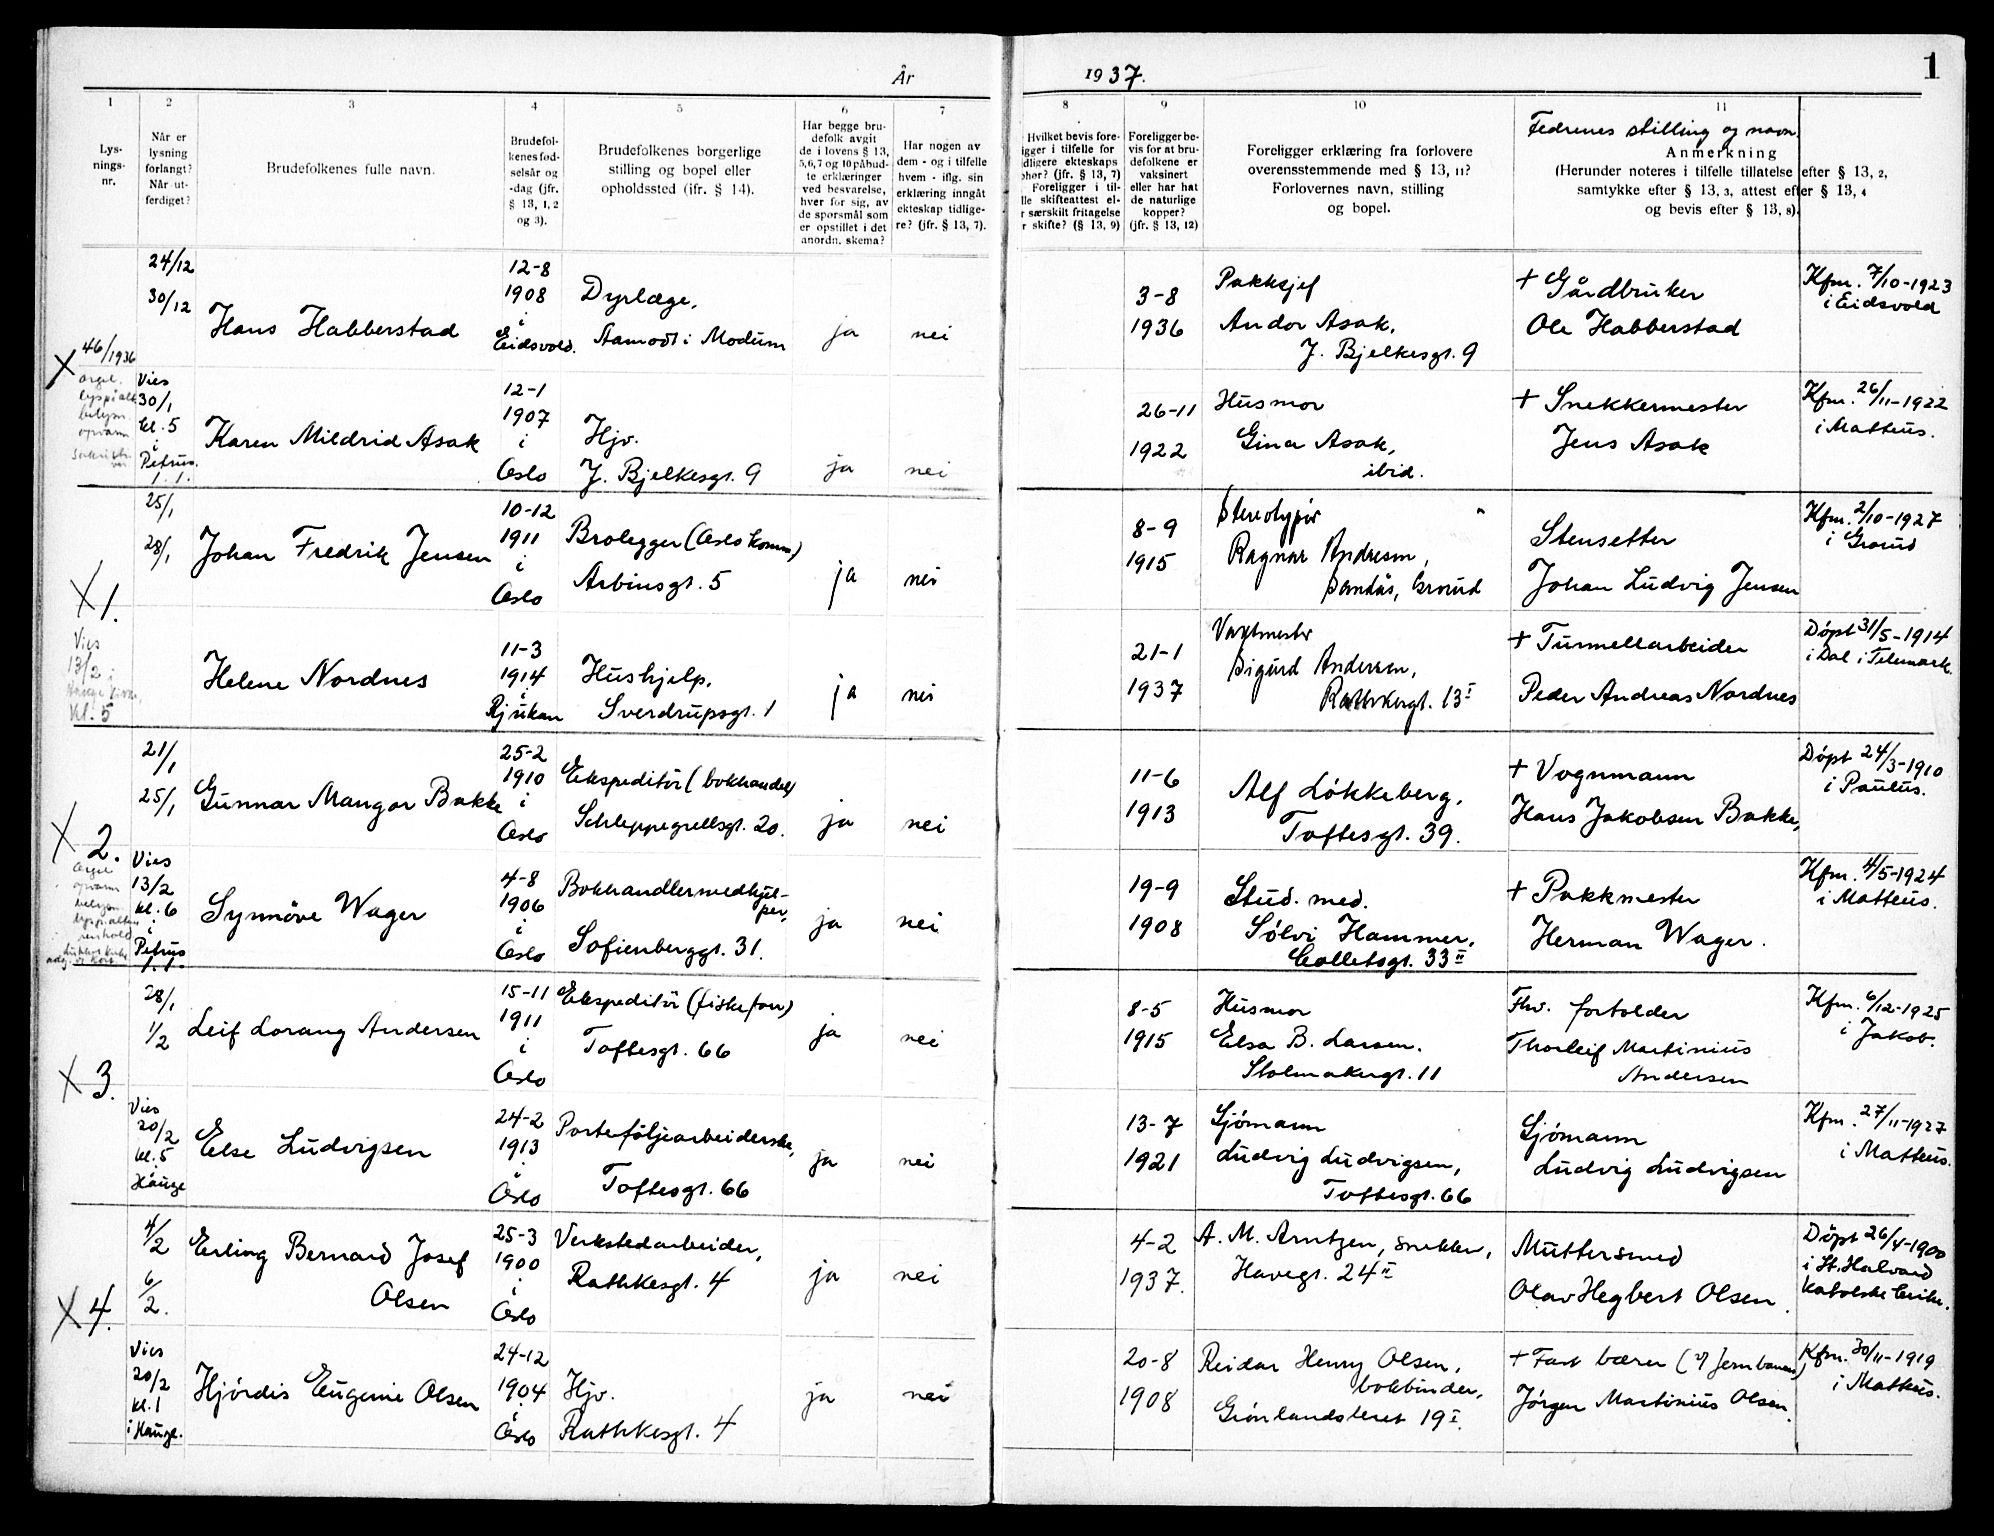 År
1937.
1
1
2
3
4
5
6
7
8
9
10
11
Lys-
nings-
nr.
Når er
lysning
forlangt?
Når ut-
ferdiget?
Brudefolkenes fulle navn.
Brudefol-
kenes fød-
selsår og
-dag (jfr.
§ 13, 1, 2
og 3).
Brudefolkenes borgerlige
stilling og bopel eller
opholdssted (ifr. § 14).
Har begge bru-
defolk avgit
de i lovens § 13,
5, 6, 7 og 10 påbud-
te erklæringer
ved besvarelse,
hver for sig, av
de spørsmål som
er opstillet i det
anordn. skema?
Har nogen av
dem - og i tilfelle
hvem - iflg. sin
erklæring inngått
ekteskap tidlige-
re? (jfr. § 13, 7).
Hvilket bevis fore-
igger i tilfelle for
idligere ekteskaps
phør? (jfr. § 13, 7)
Foreligger i til-
lle skifteattest el-
r særskilt fritagelse
r skifte? (§ 13, 9)
Foreligger be-
vis for at bru-
defolkene er
vaksinert
eller har hat
de naturlige
kopper?
(jfr. § 13, 12)
Foreligger erklæring fra forlovere
overensstemmende med § 13, 11?
Forlovernes navn, stilling
og bopel.
Fedrenes stilling og navn.
Anmerkning
(Herunder noteres i tilfelle tillatelse efter § 13, 2,
samtykke efter § 13, 3, attest efter § 13, 4
og bevis efter § 13, 8).
X 46/1936
24/12
30/12
Hans Habberstad
12-8
1908
i
Eidsvold.
Dyrlæge,
Aamodt i Modum
ja
nei
3-8
1936
Pakksjef
Andor Asak,
J. Bjelkesgt. 9
+ Gårdbruker
Ole Habberstad
Kfm. 7/10-1923
i Eidsvold
Vies
30/1
kl. 5
i
Petrus.
Karen Mildrid Asak
12-1
1907
i
Oslo
Hjv.
J. Bjelkesgt. 9
ja
nei
26-11
1922
Husmor
Gina Asak,
ibid.
+ Snekkermester
Jens Asak
Kfm. 26/11-1922
i Matteus.
X 1.
25/1
28/1
Johan Fredrik Jensen
10-12
1911
i
Oslo
Brolegger (Oslo komm)
Arbinsgt. 5
ja
nei
8-9
1915
Stereotypør
Ragnar Andresen,
Sandås, Grorud
Stensetter
Johan Ludvig Jensen
Kfm. 2/10-1927
i Grorud
Vies
13/2 i
kl. 5
Helene Nordnes
11-3
1914
i
Rjukan
Hushjelp,
Sverdrupsgt. 1
ja
nei
21-1
1937
Vaktmester
Sigurd Andersen,
Rathkesgt. 13 I
+ Tunnellarbeider
Peder Andreas Nordnes
Døpt 31/5-1914
i Dal i Telemark.
X 2.
21/1
25/1
Gunnar Mangor Bakke
25-2
1910
i
Oslo
Ekspeditør (bokhandel)
Schleppegrellsgt. 20.
ja
nei
11-6
1913
Alf Løkkeberg,
Toftesgt. 39.
+ Vognmann
Hans Jakobsen Bakke,
Døpt 24/3-1910
i Paulus.
Vies
13/2
kl. 6
i
Petrus
Synnöve Wager
4-8
1906
i
Oslo
Bokhandlermedhjel-
per,
Sofienberggt. 31.
ja
nei
19-9
1908
Stud. med.
Sølvi Hammer,
Colletsgt. 33 II
+ Pakkmester
Herman Wager.
Kfm. 4/5-1924
i Matteus.
X 3.
28/1
1/2
Leif Lorang Andersen
15-11
1911
i
Oslo
Ekspeditör (fiskeforr)
Toftesgt. 66
ja
nei
8-5
1915
Husmor
Elsa B. Larsen.
Stolmakergt. 11
Fhv. fortolder
Thorleif Martinius
Andersen
Kfm. 6/12-1925
i Jakob.
Vies
20/2
kl. 5
Hauge
Else Ludvigsen
24-2
1913
i
Oslo
Porteföljearbeiderske,
Toftesgt. 66
ja
nei
13-7
1921
Sjømann
Ludvig Ludvigsen,
Toftesgt. 66
Sjømann
Ludvig Ludvigsen
Kfm. 27/11-1927
i Matteus.
X 4.
4/2
6/2.
Erling Bernard Josef
Olsen
25-3
1900
i
Oslo
Verkstedarbeider,
Rathkesgt. 4
ja
nei
4-2
1937.
A. M. Arntzen, snekker,
Havegt. 24 II
Muttersmed
Olav Hegbert Olsen.
Døpt 26/4-1900
i St. Halvard
katolske kirke.
Vies
20/2
kl. 1
i Hauge.
Hjördis Eugenie Olsen
24-12
1904
i
Oslo
Hjv.
Rathkesgt. 4
ja
nei
20-8
1908
Reidar Henry Olsen,
bokbinder,
Grønlandsleret 19 I.
+ Fast bærer (v/ Jernbanen)
Jørgen Martinius Olsen.
Kfm. 30/11-1919
i Matteus.